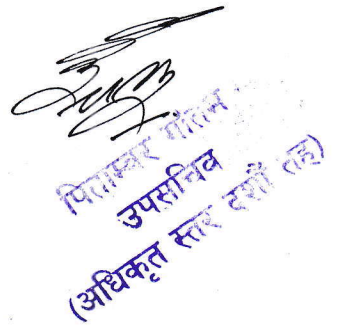 पिताम्बर गौतम
उपसचिव
(अधिकृत स्तर दशौँ तह)